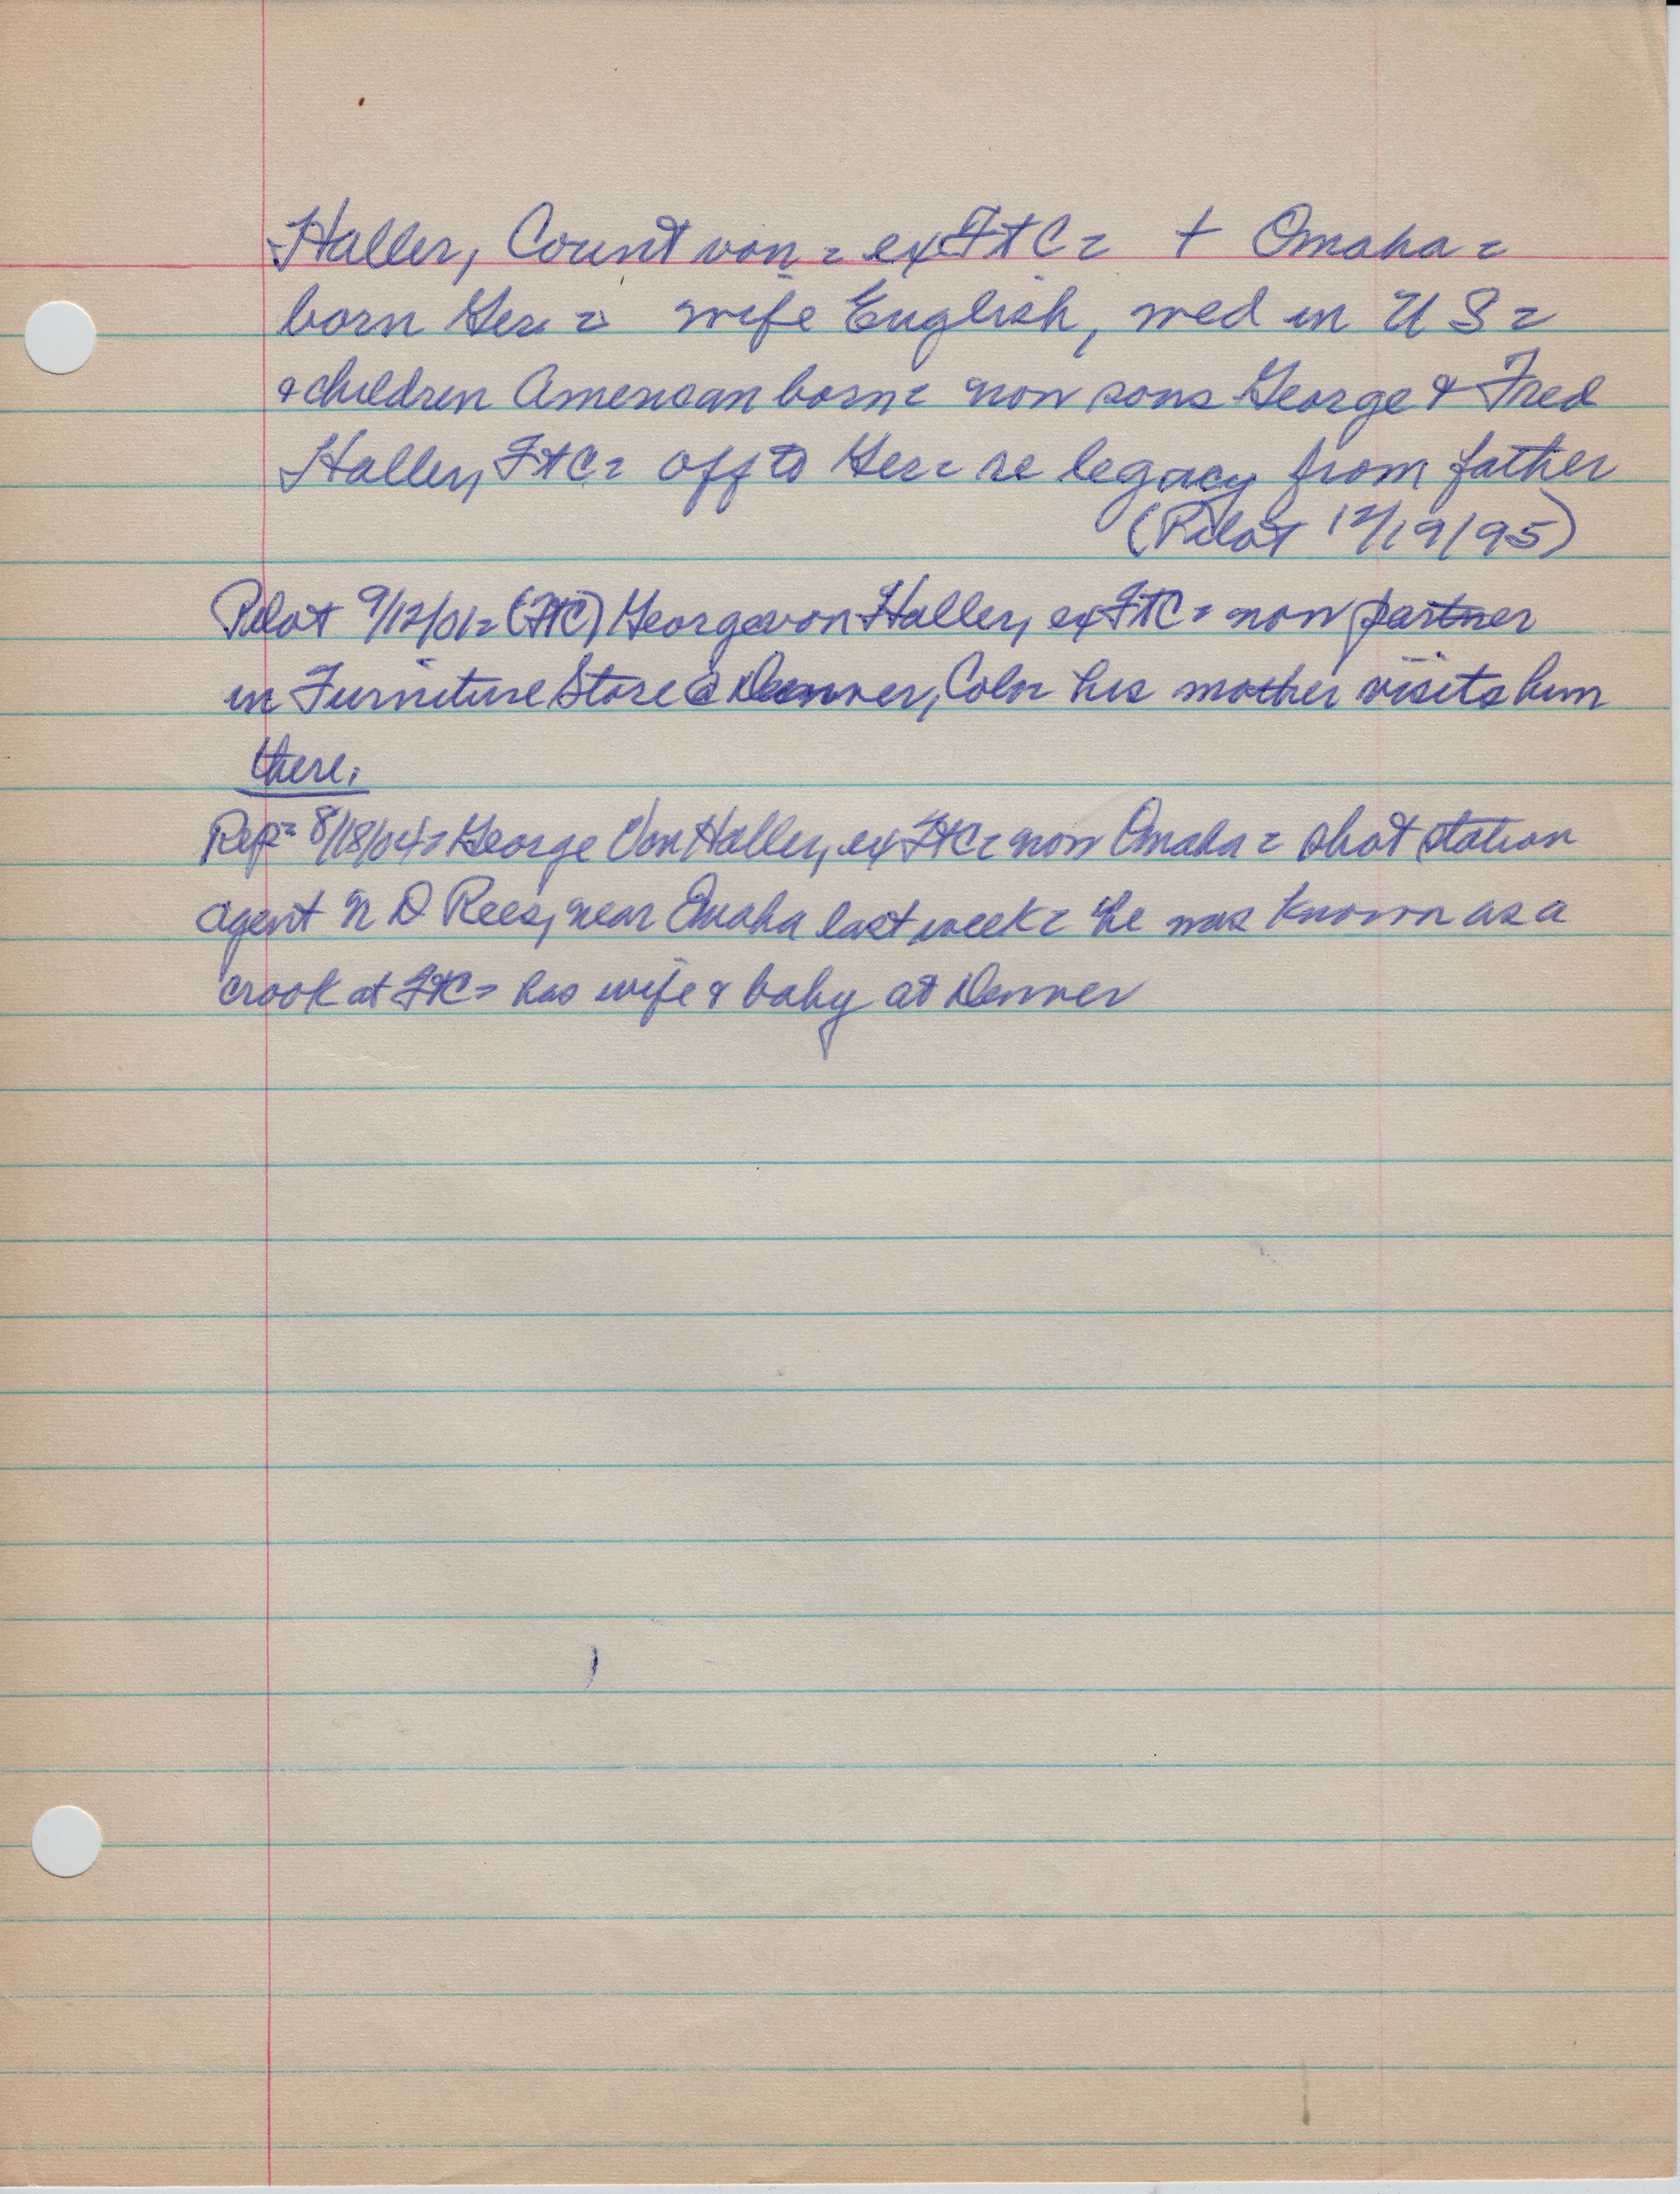 Haller, Count von = ex FtC = + Omaha =
born Ger = wife English, wed in US =
& children American born = now sons George & Fred
Haller, FtC = off to Ger = re legacy from father
(Pilot 12/19/95)
Pilot 9/12/01 = (FtC) George von Haller, ex FtC = now partner
in Furniture Store @ Denver, Colo = his mother visits him
there.
Rep = 8/18/04 = George Von Haller, ex FtC = now Omaha = shot station
agent N D Rees, near Omaha last week = he was known as a
crook at FtC = has wife & baby at Denver